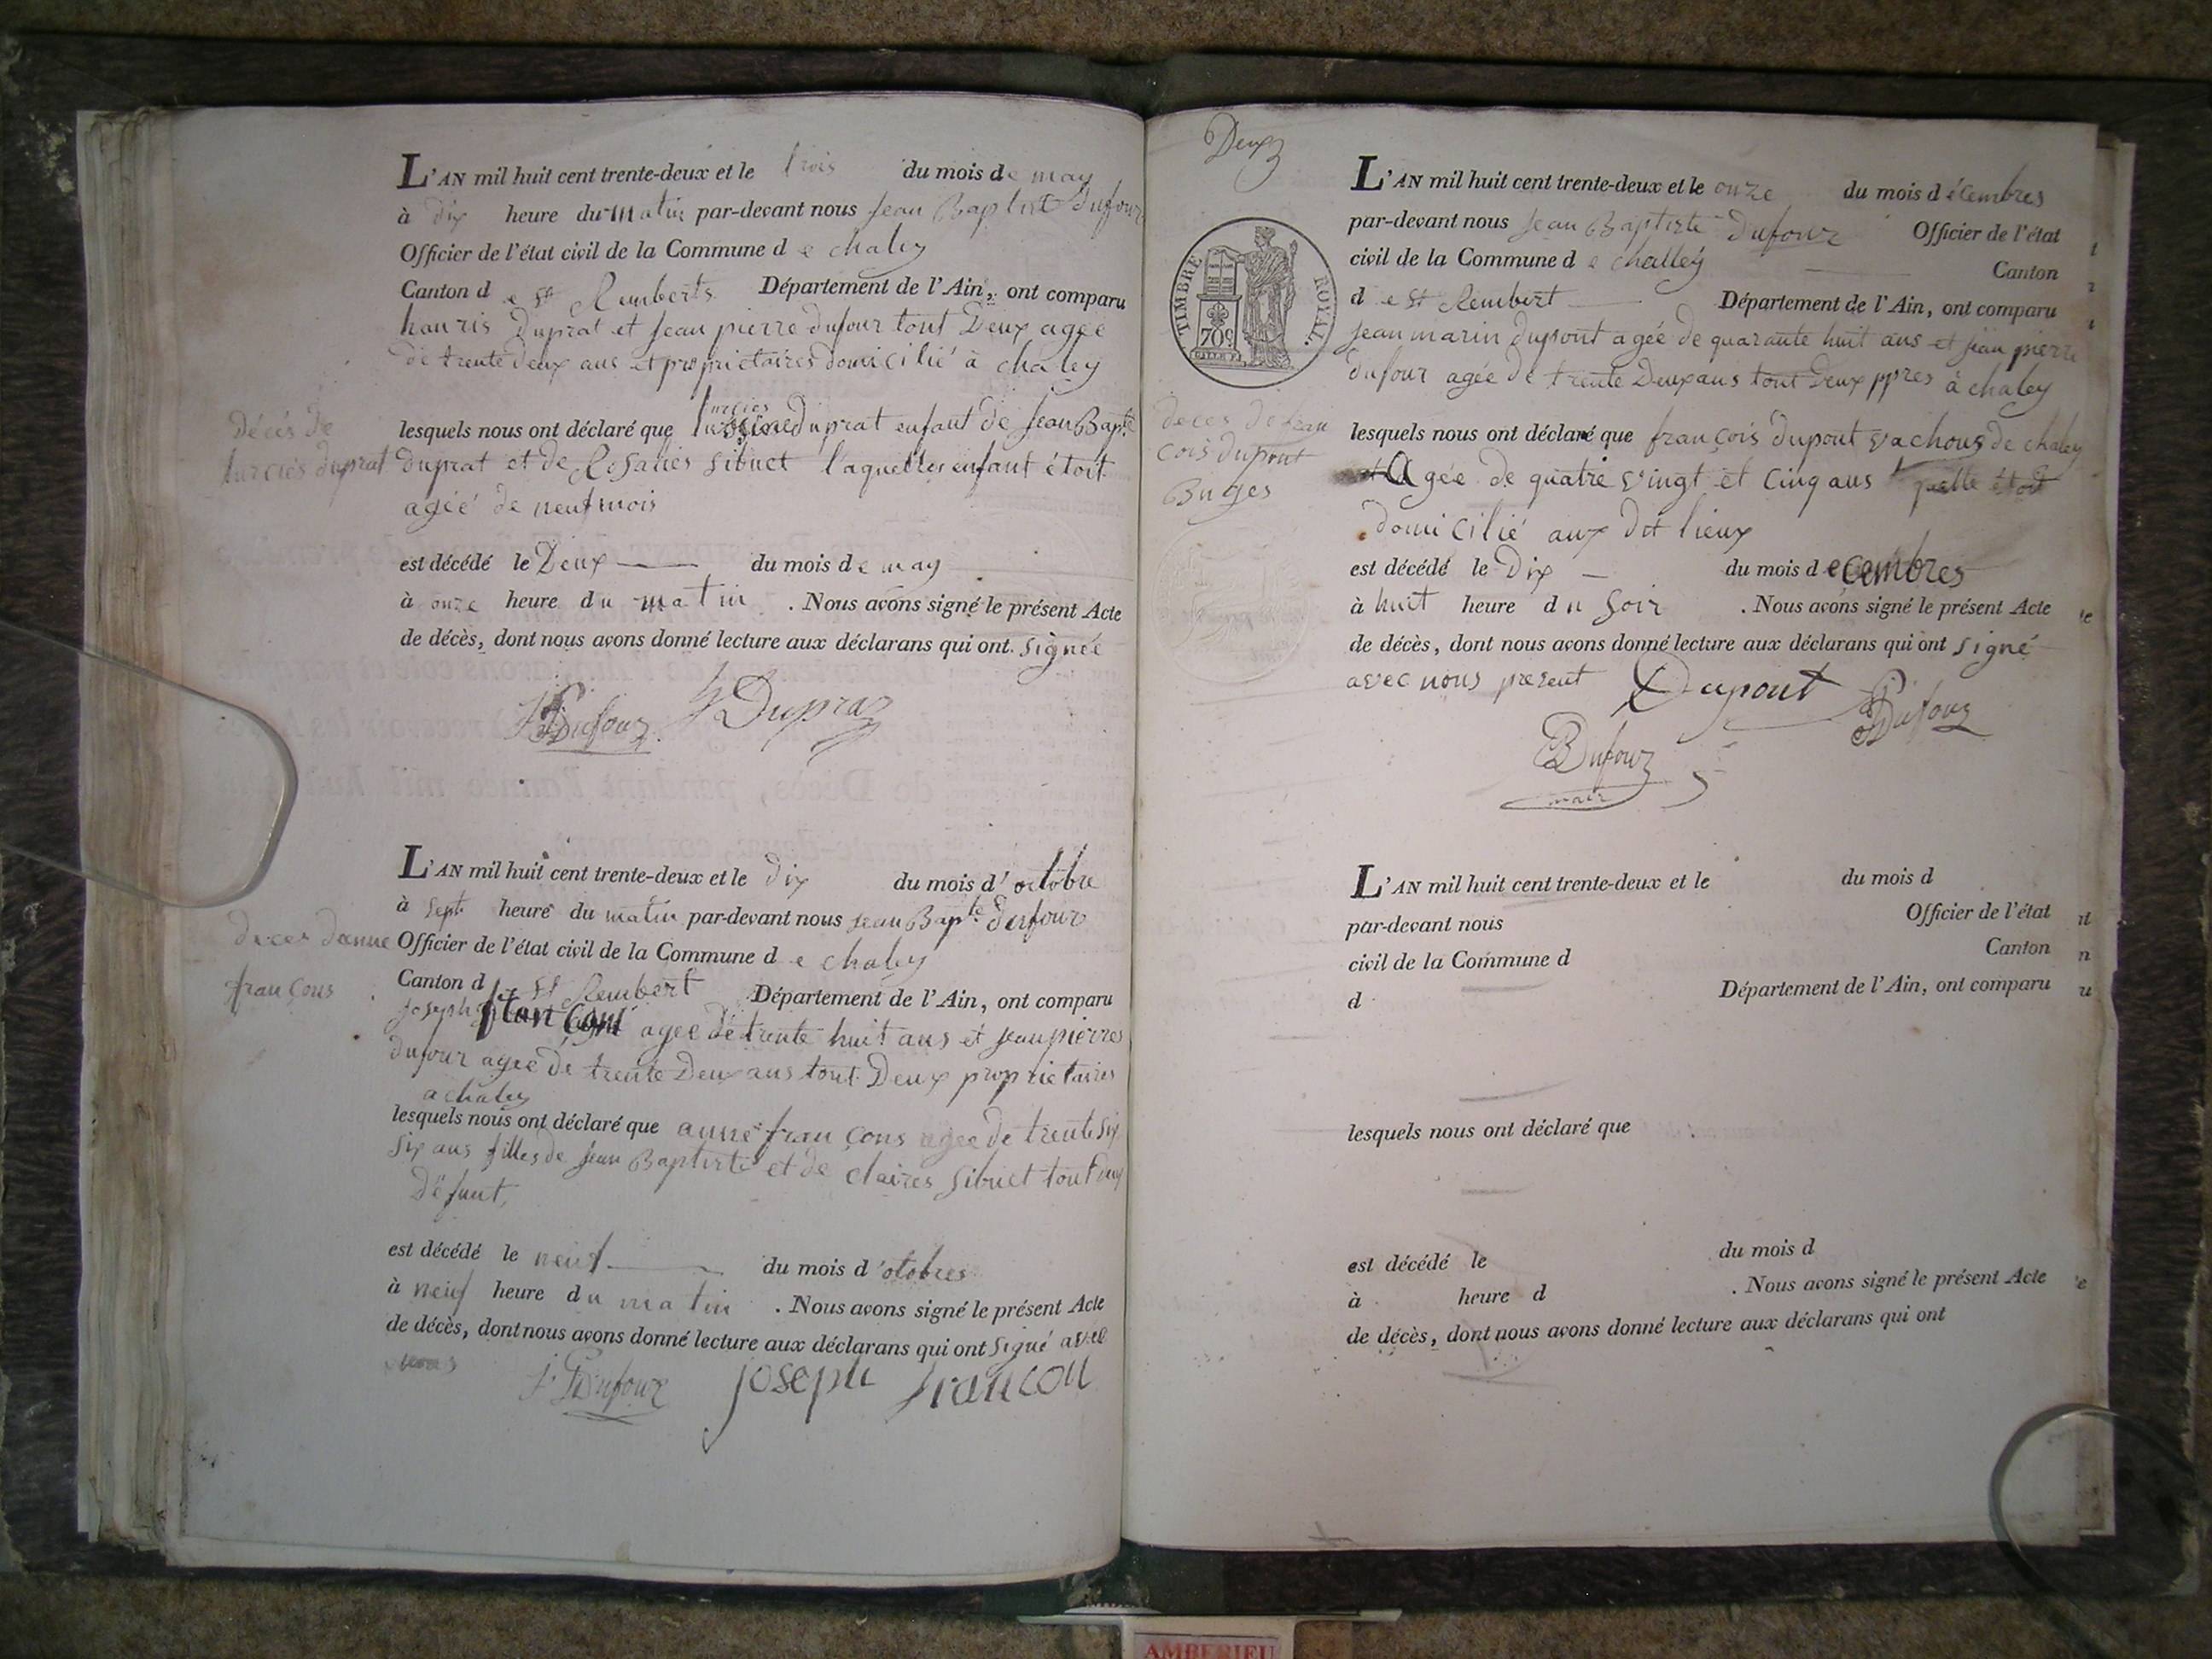 L'AN mil huit cent trente-deux et le trois du mois de may
à dix heure du matin par-devant nous jean Baptist dufour
Officier de l'état civil de la Commune d e chaley
Canton d e st Remberts Département de l'Ain, ont comparu
Duprat et jean pierre dufour tout Deux agee
de trente deux ans et proprietaires domicilié à chaley
Décés de
duprat
lesquels nous ont déclaré que duprat enfant de jean Bapte
duprat et de Rosalies sibuet l'aquelles enfant étoit
agéé de neuf mois
est décédé le Deux du mois de may
à onze heure du matin . Nous avons signé le présent Acte
de décès, dont nous avons donné lecture aux déclarans qui ont signée
Dufour Dupraz
L'AN mil huit cent trente-deux et le dix du mois d'octobre
à sept heure du matin par-devant nous jean Bapte dufour
deces danne
françons
Officier de l'état civil de la Commune d e chaley
Canton d e st Rembert Département de l'Ain, ont comparu
joseph françons agee de trente huit ans et jean pierres
dufour agee de trente Deux ans tout Deux proprietaires
a chaley
lesquels nous ont déclaré que anne françons agee de trente six
six ans filles de jean Baptiste et de claires sibuet tout deux
défunt,
est décédé le neuf du mois d'otobres
à neuf heure du matin . Nous avons signé le présent Acte
de décès, dont nous avons donné lecture aux déclarans qui ont signé avec
nous
Dufour joseph francon
Deux
TIMBRE ROYAL
70c
L'AN mil huit cent trente-deux et le onze du mois d écembres
par-devant nous jean Baptiste Dufour Officier de l'état
civil de la Commune d e challey Canton
d e st Rembert Département de l'Ain, ont comparu
jean marin dupont agée de quarante huit ans et jean pierre
dufour agée de trente Deux ans tout Deux ppres à chaley
deces de fran
cois dupont
Buges
lesquels nous ont déclaré que françois dupont de chaley
Agée de quatre vingt et cinq ans
domicilié aux dit lieux
est décédé le Dix du mois d ecembres
à huit heure du soir . Nous avons signé le présent Acte
de décès, dont nous avons donné lecture aux déclarans qui ont signé
avec nous present Dupont Dufour
Dufour
mair
L'AN mil huit cent trente-deux et le du mois d
par-devant nous Officier de l'état
civil de la Commune d Canton
d Département de l'Ain, ont comparu
lesquels nous ont déclaré que
est décédé le du mois d
à heure d . Nous avons signé le présent Acte
de décès, dont nous avons donné lecture aux déclarans qui ont
AMBERIEU